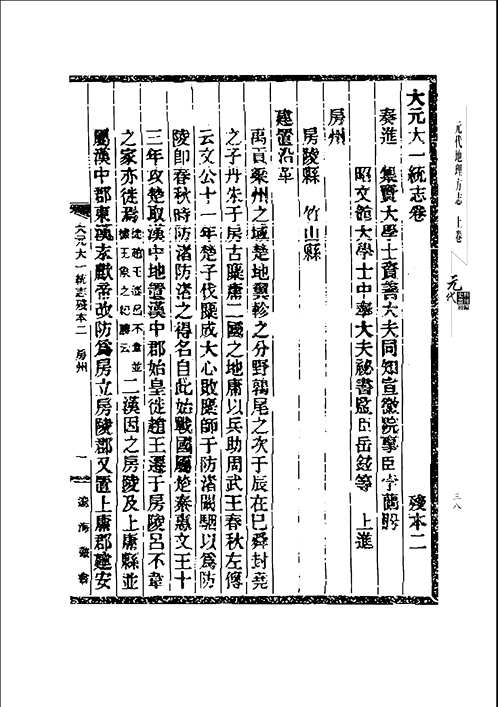 大元大一統志卷　殘本二
奏進　集賢大學士資善大夫同知宣徽院事臣孛蘭肹
昭文館大學士中奉大夫祕書監臣岳鉉等　上進
房州
房陵縣　竹山縣
建置沿革
禹貢梁州之域楚地翼軫之分野鶉尾之次于辰在巳舜封堯
之子丹朱于房古麋庸二國之地庸以兵助周武王春秋左傳
云文公十一年楚子伐麋成大心敗麋師于防渚闞駰以爲防
陵卽春秋時防渚防渚之得名自此始戰國屬楚秦惠文王十
三年攻楚取漢中地置漢中郡始皇徙趙王遷于房陵呂不韋
之家亦徙焉徙趙王遷呂不韋並據王象之紀勝云二漢因之房陵及上庸縣並
屬漢中郡東漢末獻帝改防爲房立房陵郡又置上庸郡建安
大元大一統志殘本二　房州
一
遼海叢書
元代地理方志　上卷
元
代
三八